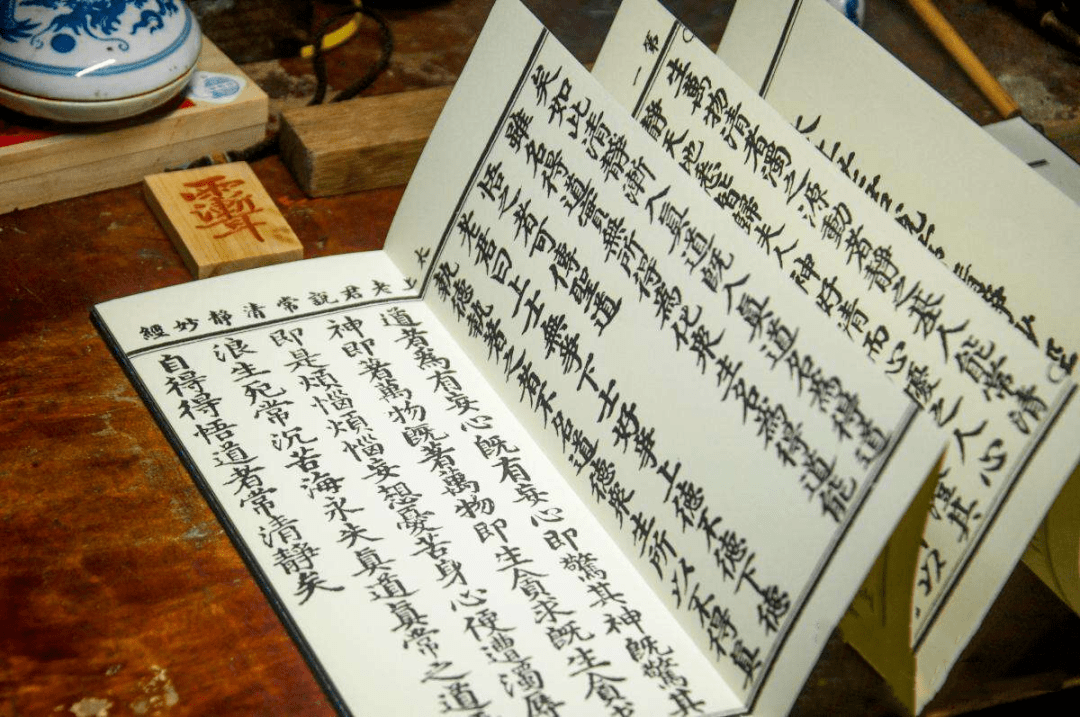 第一
生萬物清者濁之源動者靜之基人能常清
靜天地悉皆歸夫人神好清而心擾之人心
矣如此清靜漸入真道既入真道名為得道
雖名得道實無所得為化眾生名為得道能
悟之者可傳聖道
老君曰上士無爭下士好爭上德不德下德
執德執著之者不名道德眾生所以不得真
太上老君說常清靜妙經
道者為有妄心既有妄心即驚其神既驚其
神即著萬物既著萬物即生貪求既生貪
即是煩惱煩惱妄想憂苦身心便遭濁辱
浪生死常沉苦海永失真道真常之道
自得得悟道者常清靜矣